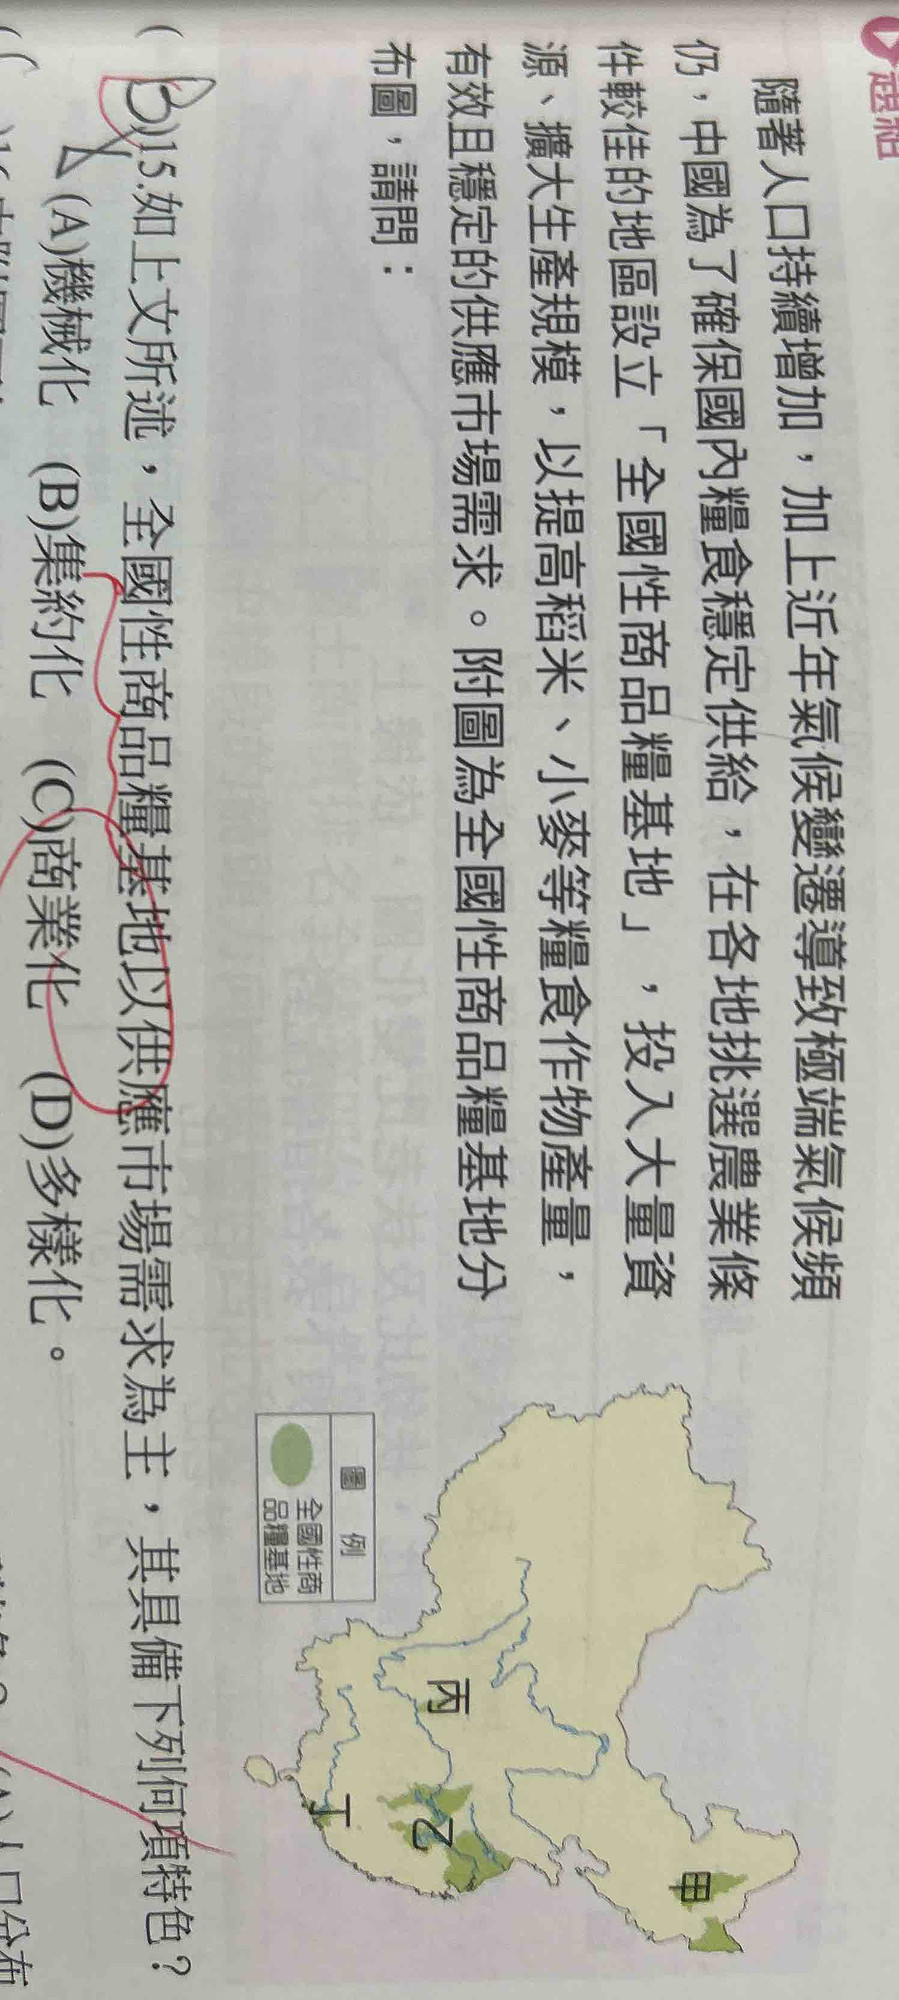 題組
隨著人口持續增加，加上近年氣候變遷導致極端氣候頻
仍，中國為了確保國內糧食穩定供給，在各地挑選農業條
件較佳的地區設立「全國性商品糧基地」，投入大量資
源、擴大生產規模，以提高稻米、小麥等糧食作物產量，
有效且穩定的供應市場需求。附圖為全國性商品糧基地分
布圖，請問：
圖例
全國性商
品糧基地
甲
乙
丙
丁
( B )15.如上文所述，全國性商品糧基地以供應市場需求為主，其具備下列何項特色？
(A)機械化 (B)集約化 (C)商業化 (D)多樣化。
(A)人口分布